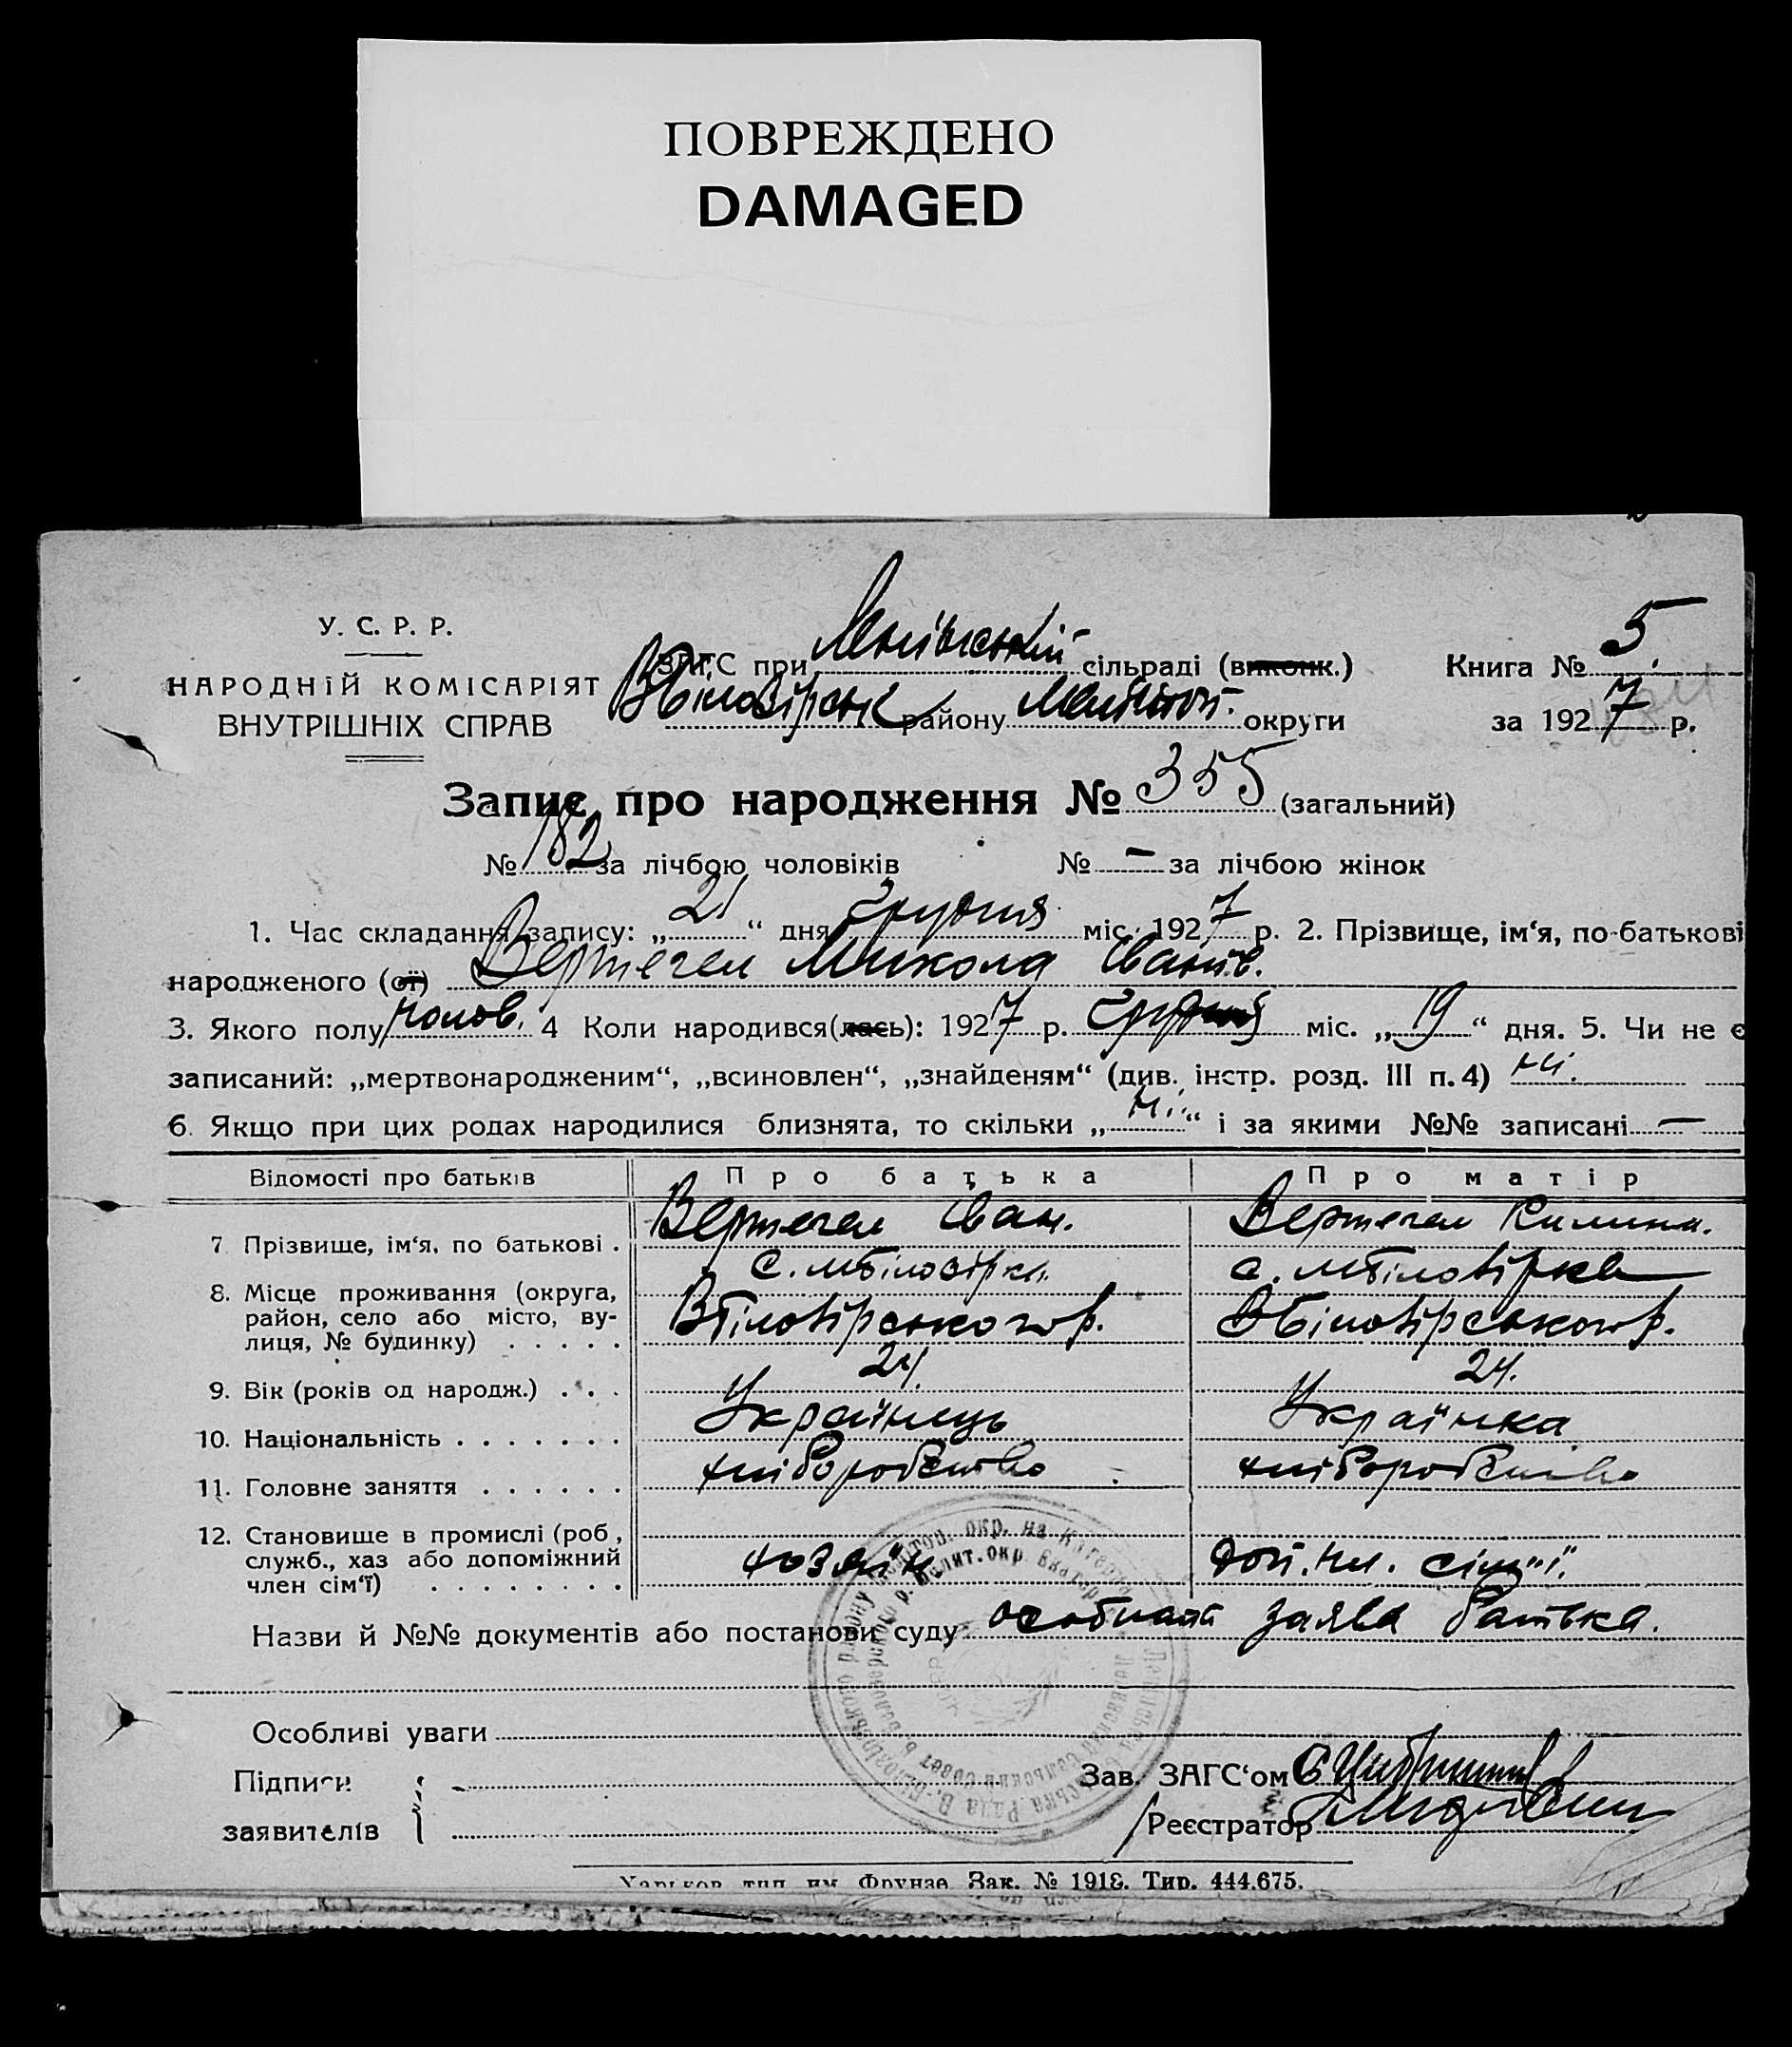 ПОВРЕЖДЕНО
DAMAGED
У. С. Р. Р.
НАРОДНІЙ КОМІСАРІЯТ
ВНУТРІШНІХ СПРАВ
ЗАГС при сільраді (виконк.) Книга № 5.
району Меліт. округи за 1927 р.
Запис про народження № 355 (загальний)
№ 182 за лічбою чоловіків № — за лічбою жінок
1. Час складання запису: „ 21 “ дня грудня міс. 1927 р. 2. Прізвище, ім‘я, по-батькові
народженого (ої) Вертегел Микола Іванів.
3. Якого полу чолов. 4 Коли народився(лась): 1927 р. грудня міс. „ 19 “ дня. 5. Чи не є
записаний: „мертвонародженим“, „всиновлен“, „знайденям“ (див. інстр. розд. III п. 4) ні.
6. Якщо при цих родах народилися близнята, то скільки „ ні. “ і за якими №№ записані —
Відомості про батьків Про батька Про матір
7 Прізвище, ім‘я, по батькові . Вертегел Іван. Вертегел Килина.
8. Місце проживання (округа, с. мБілозірка с. мБілозірка
район, село або місто, ву-
лиця, № будинку) . . . . . ВБілозірського р. ВБілозірського р.
9. Вік (років од народж.) . . . 24. 24.
10. Національність . . . . . . . Українець Українка
11. Головне заняття . . . . . . хліборобство хліборобство
12. Становище в промислі (роб,
служб., хаз або допоміжний хозяїн доп. чл. сім"ї.
член сім‘ї) . . . . . . . .
Назви й №№ документів або постанови суду особиста заява батька.
Особливі уваги
Підписи
заявителів
Зав. ЗАГС‘ом
Реєстратор
Харьков, тип. им. Фрунзе. Зак. № 1918. Тир. 444.675.